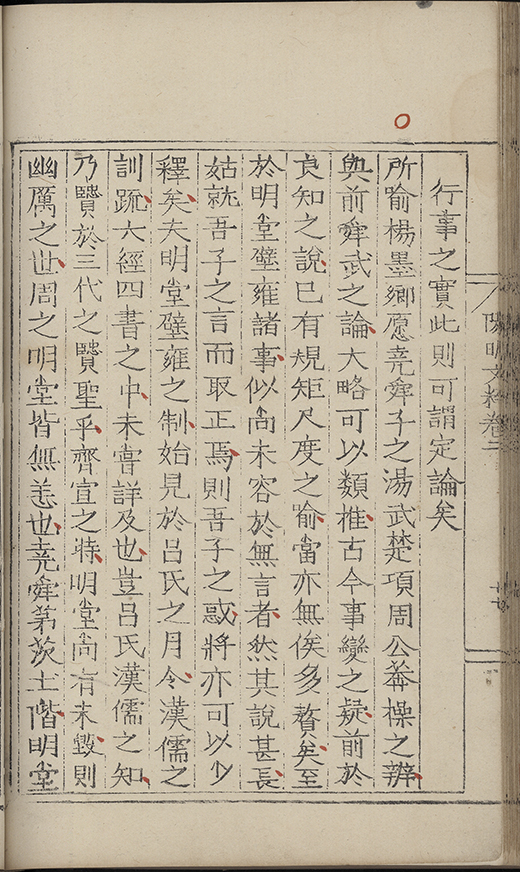 行事之實此則可謂定論矣
所喻楊墨鄉愿堯舜子之湯武楚項周公莽操之辨
與前舜武之論大略可以類推古今事變之疑前於
良知之說已有規矩尺度之喻當亦無俟多贅矣至
於明堂壁雍諸事似尚未容於無言者然其說甚長
姑就吾子之言而取正焉則吾子之惑將亦可以少
釋矣夫明堂壁雍之制始見於呂氏之月令漢儒之
訓疏六經四書之中未嘗詳及也豈呂氏漢儒之知
乃賢於三代之賢聖乎齊宣之時明堂尚有未毀則
幽厲之世周之明堂皆無恙也堯舜茅茨土階明堂
陽明文粹卷二